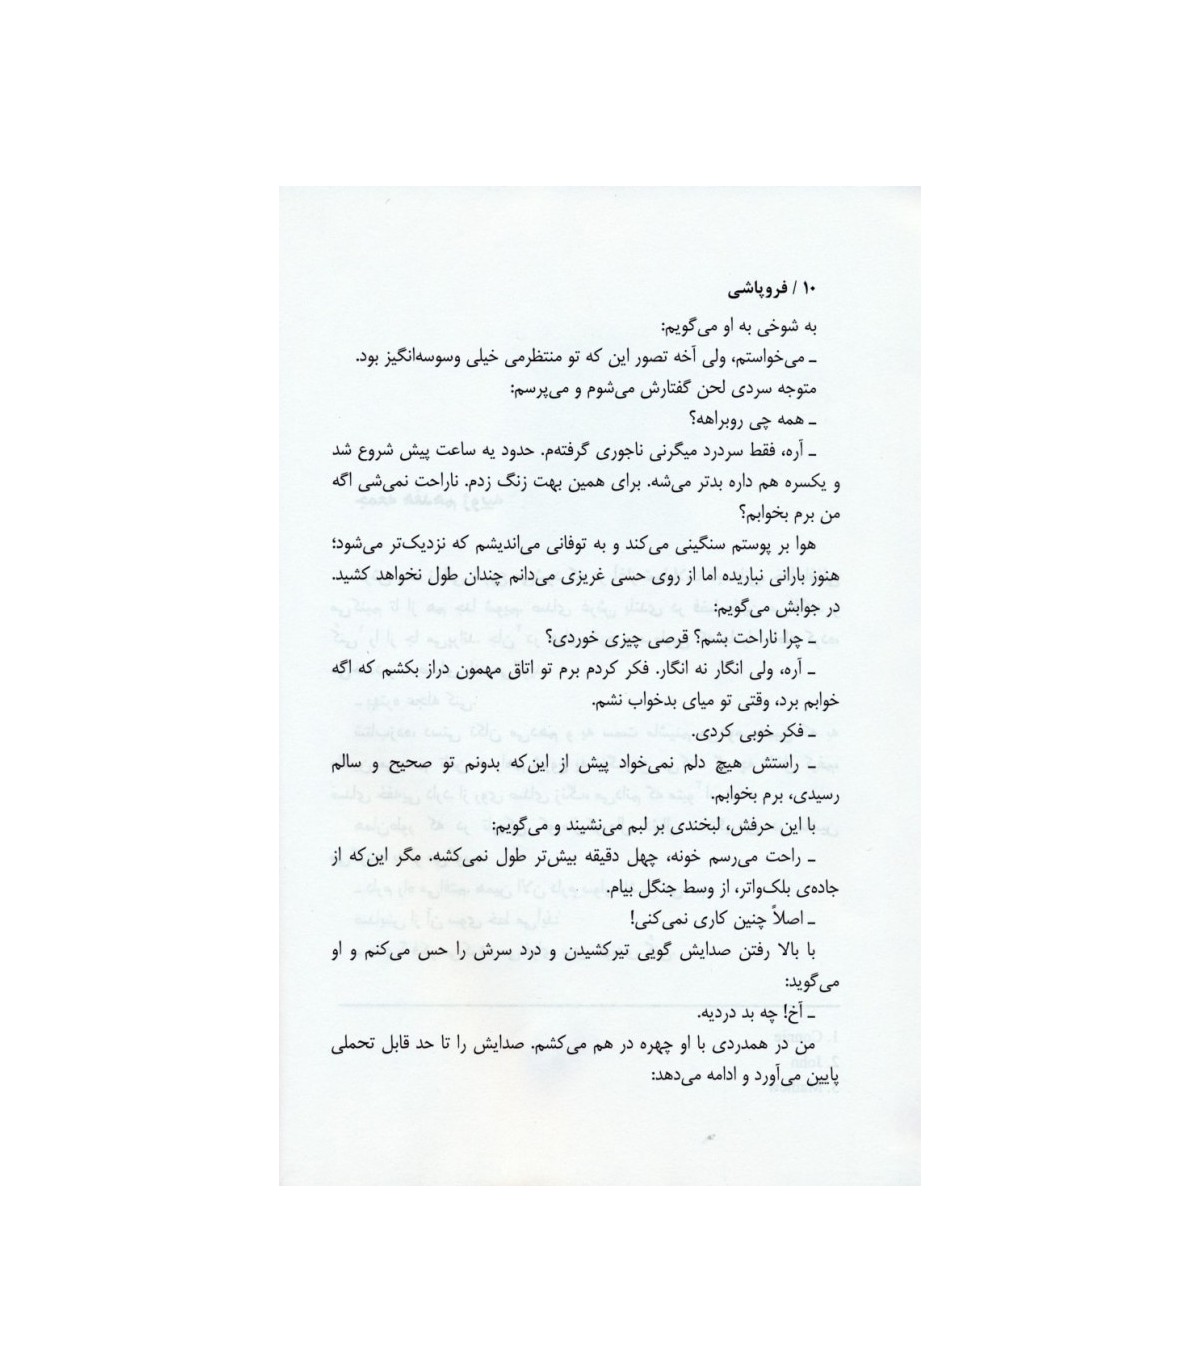 ۱۰ / فروپاشی
به شوخی به او می‌گویم:
ـ می‌خواستم، ولی آخه تصور این که تو منتظرمی خیلی وسوسه‌انگیز بود.
متوجه سردی لحن گفتارش می‌شوم و می‌پرسم:
ـ همه چی روبراهه؟
ـ آره، فقط سردرد میگرنی ناجوری گرفته‌م. حدود یه ساعت پیش شروع شد
و یکسره هم داره بدتر می‌شه. برای همین بهت زنگ زدم. ناراحت نمی‌شی اگه
من برم بخوابم؟
هوا بر پوستم سنگینی می‌کند و به توفانی می‌اندیشم که نزدیک‌تر می‌شود؛
هنوز بارانی نباریده اما از روی حسی غریزی می‌دانم چندان طول نخواهد کشید.
در جوابش می‌گویم:
ـ چرا ناراحت بشم؟ قرصی چیزی خوردی؟
ـ آره، ولی انگار نه انگار. فکر کردم برم تو اتاق مهمون دراز بکشم که اگه
خوابم برد، وقتی تو میای بدخواب نشم.
ـ فکر خوبی کردی.
ـ راستش هیچ دلم نمی‌خواد پیش از این‌که بدونم تو صحیح و سالم
رسیدی، برم بخوابم.
با این حرفش، لبخندی بر لبم می‌نشیند و می‌گویم:
ـ راحت می‌رسم خونه، چهل دقیقه بیش‌تر طول نمی‌کشه. مگر این‌که از
جاده‌ی بلک‌واتر، از وسط جنگل بیام.
ـ اصلاً چنین کاری نمی‌کنی!
با بالا رفتن صدایش گویی تیرکشیدن و درد سرش را حس می‌کنم و او
می‌گوید:
ـ آخ! چه بد دردیه.
من در همدردی با او چهره در هم می‌کشم. صدایش را تا حد قابل تحملی
پایین می‌آورد و ادامه می‌دهد: